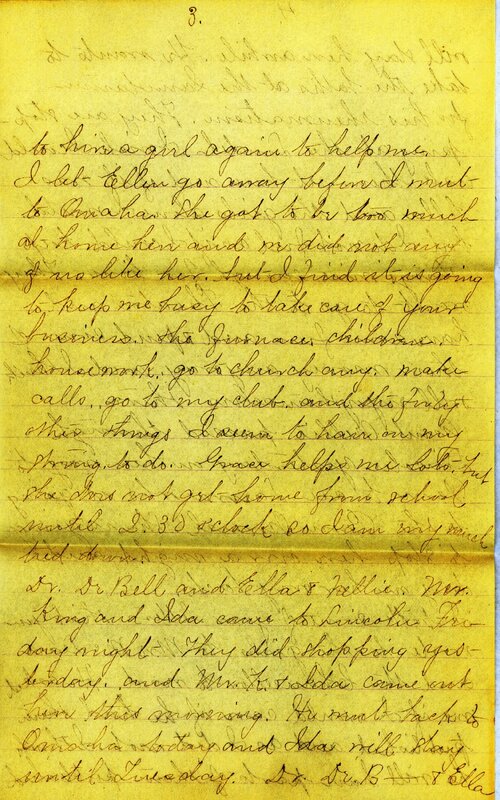 3.
to hire a girl again to help me.
I let Ellen go away before I went
to Omaha. She got to be too much
at home here and we did not any
of us like her. but I find it is going
to keep me busy to take care of your
business. the furnace, children
housework, go to church any. make
calls, go to my club, and the forty
other things I seem to have on my
string to do. Grace helps me lots, but
she does not get home from school
until 2.30 o'clock so I am very much
tied down.
Dr. De Bell and Ella & Nellie. Mr.
King and Ida came to Lincoln Fri-
day night. They did shopping yes-
terday. and Mr. K. & Ida came out
here this morning. He went back to
Omaha today and Ida will stay
until Tuesday. Dr. De B & Ella